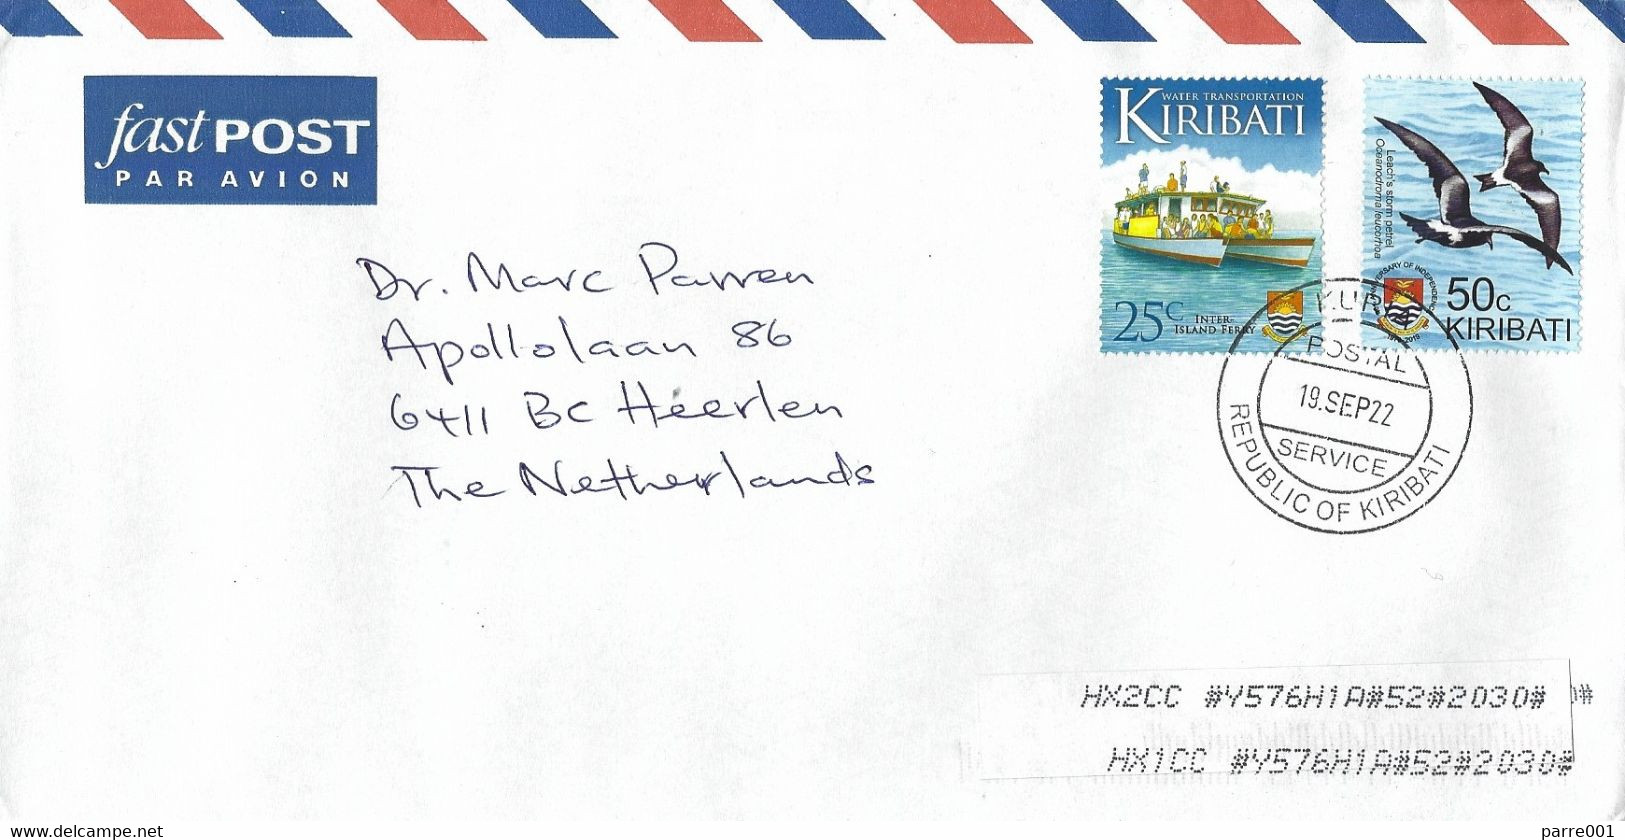 fast POST
PAR AVION
WATER TRANSPORTATION
KIRIBATI
25c
INTER-
ISLAND FERRY
Leach's storm petrel
Oceanodroma leucorhoa
ANNIVERSARY OF INDEPENDENCE
50c
KIRIBATI
POSTAL
19.SEP22
SERVICE
REPUBLIC OF KIRIBATI
Dr. Marc Parren
Apollolaan 86
6411 BC Heerlen
The Netherlands
HX2CC #Y576H1A#52#2030#
HX1CC #Y576H1A#52#2030#
www.delcampe.net
parre001